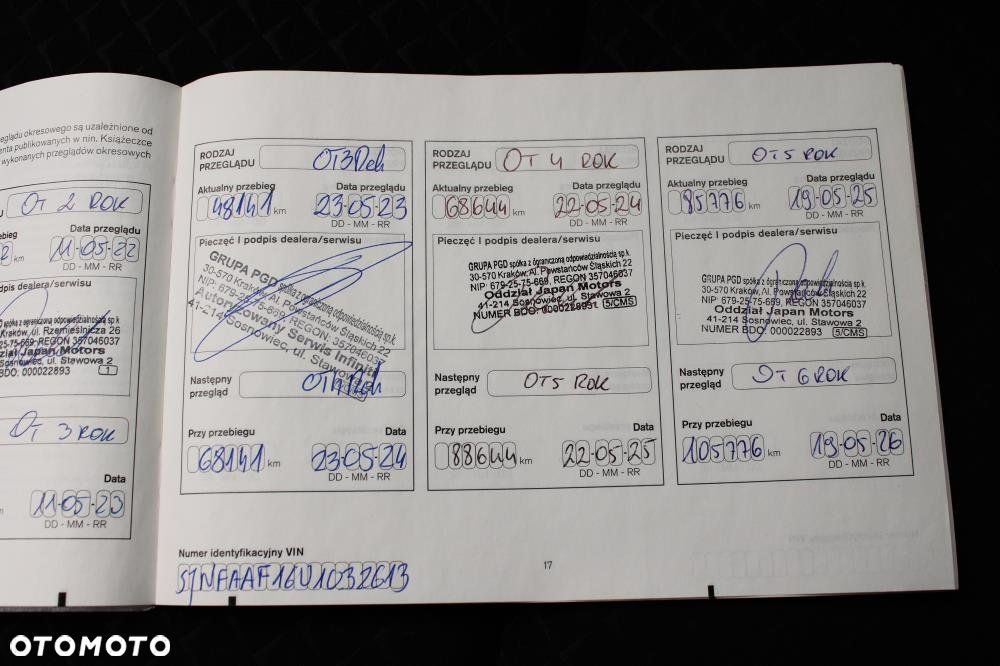 eglądu okresowego są uzależnione od
enta publikowanych w nin. Książeczce
wykonanych przeglądów okresowych
OT 2 ROK
ebieg
Data przeglądu
km
11-05-22
DD - MM - RR
dpis dealera/serwisu
spółka z ograniczoną odpowiedzialnością sp.k
Kraków, ul. Rzemieślnicza 26
25-75-669, REGON 357046037
dział Japan Motors
Sosnowiec, ul. Stawowa 2
BDO: 000022893
1
OT 3 ROK
Data
km
11-05-23
DD - MM - RR
RODZAJ
PRZEGLĄDU
OT3Rok
Aktualny przebieg
Data przeglądu
48141 km
23-05-23
DD - MM - RR
Pieczęć I podpis dealera/serwisu
GRUPA PGD spółka z ograniczoną odpowiedzialnością sp.k
30-570 Kraków, Al. Powstańców Śląskich 22
NIP: 679-25-75-669, REGON: 357046037
Autoryzowany Serwis Infiniti
41-214 Sosnowiec, ul. Stawowa
Następny
przegląd
Przy przebiegu
Data
68141 km
23-05-24
DD - MM - RR
RODZAJ
PRZEGLĄDU
OT 4 ROK
Aktualny przebieg
Data przeglądu
68644 km
22-05-24
DD - MM - RR
Pieczęć I podpis dealera/serwisu
GRUPA PGD spółka z ograniczoną odpowiedzialnością sp.k
30-570 Kraków, Al. Powstańców Śląskich 22
NIP: 679-25-75-669, REGON 357046037
Oddział Japan Motors
41-214 Sosnowiec, ul. Stawowa 2
NUMER BDO: 000022893 5/CMS
Następny
przegląd
OT5 ROK
Przy przebiegu
Data
88644 km
22-05-25
DD - MM - RR
RODZAJ
PRZEGLĄDU
OT5 ROK
Aktualny przebieg
Data przeglądu
85776 km
19-05-25
DD - MM - RR
Pieczęć I podpis dealera/serwisu
GRUPA PGD spółka z ograniczoną odpowiedzialnością sp.k
30-570 Kraków, Al. Powstańców Śląskich 22
NIP: 679-25-75-669, REGON 357046037
Oddział Japan Motors
41-214 Sosnowiec, ul. Stawowa 2
NUMER BDO: 000022893 5/CMS
Następny
przegląd
OT 6 ROK
Przy przebiegu
Data
105776 km
19-05-26
DD - MM - RR
Numer identyfikacyjny VIN
SJNFAAF16U1032613
17
OTOMOTO